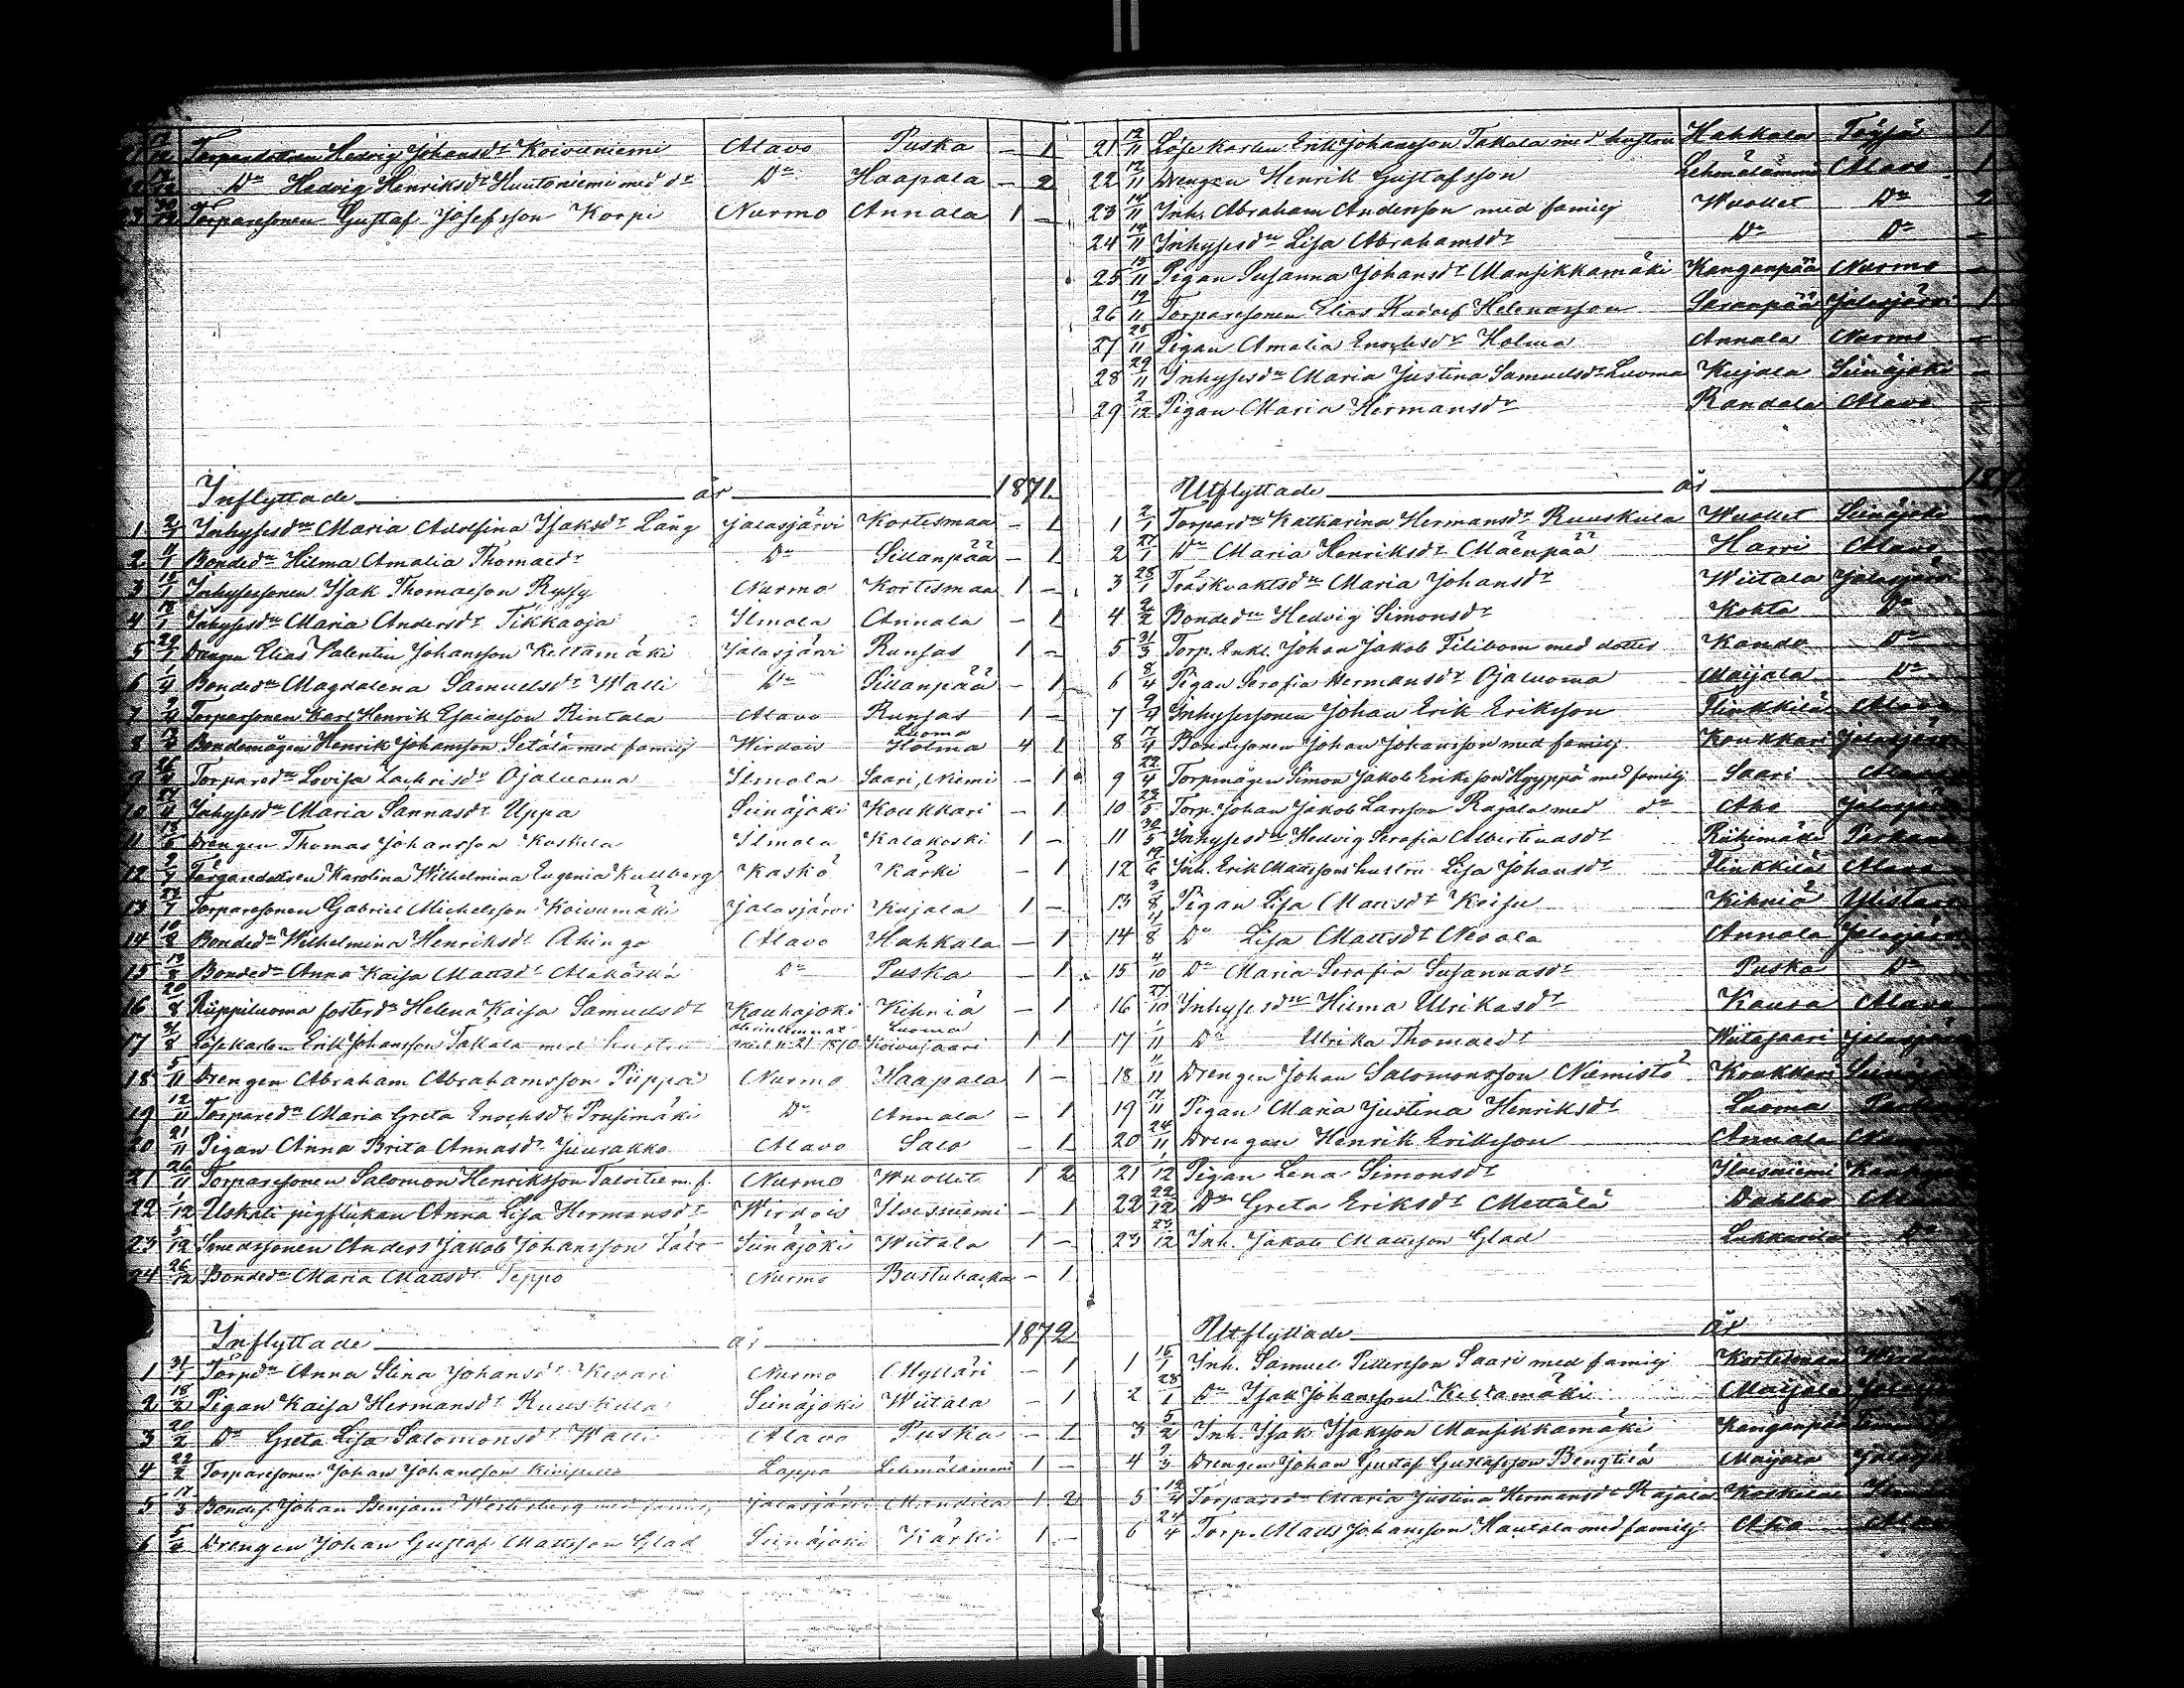 Torparedottren Hedvig Johansdr Koivuniemi Alavo Puska - 1
Dn Hedvig Henriksdr Huutoniemi med dr Dn Haapala - 2
Torparesonen Gustaf Josefsson Korpi Nurmo Annala 1 -
Inflyttade år 1871
1 2/1 Inhysesdn Maria Adolfina Isaksdr Lång Jalasjärvi Kortesmaa - 1
2 11/1 Bondedn Hilma Amalia Thomaedr Dn Sillanpää - 1
3 Inhysessonen Isak Thomasson Rypsy Nurmo Kortesmaa 1 -
4 Inhysesdn Maria Andersdr Tikkaoja Ilmola Annala - 1
5 Drengen Elias Valentin Johansson Keltamäki Jalasjärvi Runsas 1 -
6 1/4 Bondedn Magdalena Samuelsdr Walli Dn Sillanpää - 1
7 Torparsonen Karl Henrik Esaiasson Rintala Alavo Runsas 1 -
8 Bondemågen Henrik Johansson Setälä med familj Wirdois Luoma Holma 4 1
9 Torparedn Lovisa Zachrisdr Ojaluoma Ilmola Saari, Niemi - 1
10 Inhysesdn Maria Sannasdr Uppa Seinäjoki Koukkari - 1
11 Drengen Thomas Johansson Koskela Ilmola Kalakoski 1 -
12 Karolina Wilhelmina Eugenia Kullberg Kaskö Kärki - 1
13 Torparesonen Gabriel Michelsson Koivumäki Jalasjärvi Kujala 1 -
14 10/8 Bondedn Wilhelmina Henriksdr Ahinga Alavo Hahkala - 1
15 13/8 Bondedn Anna Kaisa Mattsdr Dn Puska - 1
16 20/8 Riippiluoma fosterdn Helena Kaisa Samuelsdr Kauhajoki Kihniä - 1
17 31/8 Lösekarlen Erik Johansson Takala med hustru 1870 Luoma Koivusaari 1 1
18 5/11 Drengen Abraham Abrahamsson Piippa Nurmo Haapala 1 -
19 12/11 Torparedn Maria Greta Enochsdr Prusimäki Dn Annala - 1
20 21/11 Pigan Anna Brita Annasdr Juurakko Alavo Salo - 1
21 26/11 Torparesonen Salomon Henriksson Talvitie m. f. Nurmo Wuollet 1 2
22 1/12 Uskali pigflickan Anna Lisa Hermansdr Wirdois Ilvesniemi - 1
23 5/12 Smedssonen Anders Jakob Johansson Seinäjoki Wiitala 1 -
24 26/12 Bondedn Maria Mattsdr Teppo Nurmo Bastubacka - 1
Inflyttade år 1872
1 31/1 Torpdn Anna Stina Johansdr Kevari Nurmo Mylläri - 1
2 18/2 Pigan Kaisa Hermansdr Ruuskula Seinäjoki Wiitala - 1
3 20/2 Dn Greta Lisa Salomonsdr Walli Alavo Puska - 1
4 22/2 Torparesonen Johan Johansson Kivipuro Lappo Lehmälammi 1 -
5 17/3 Bondes. Johan Benjam. med familj Jalasjärvi Mandila 1 2
6 5/4 Drengen Johan Gustaf Mattsson Glad Seinäjoki Kärki 1 -
21 12/11 Lösekarlen Erik Johansson Takala med hustru Hahkala Töysä 1
22 12/11 Drengen Henrik Gustafsson Lehmälammi Alavo 1
23 14/11 Inh. Abraham Andersson med familj Wuollet Dn 2
24 14/11 Inhysesdn Lisa Abrahamsdr Dn Dn -
25 15/11 Pigan Susanna Johansdr Mansikkamäki Kanganpää Nurmo -
26 19/11 Torparesonen Elias Rudolf Helenasson Saranpää Jalasjärvi 1
27 25/11 Pigan Amalia Enochsdr Holma Annala Nurmo -
28 29/11 Inhysesdn Maria Justina Samuelsdr Luoma Kujala Seinäjoki -
29 2/12 Pigan Maria Hermansdr Randala Alavo
Utflyttade år
1 2/1 Torpardn Katharina Hermansdr Ruuskula Wuollet Seinäjoki
2 27/1 Dn Maria Henriksdr Mäenpää Harri Alavo
3 28/1 Maria Johansdr Wiitala Jalasjärvi
4 2/2 Bondedn Hedvig Simonsdr Kohta Dn
5 31/3 Torp. Enkl. Johan Jakob Filibom med dotter Kando Dn
6 8/4 Pigan Serafia Hermansdr Ojaluoma Maijala Dn
7 9/4 Inhysessonen Johan Erik Eriksson Flinkkilä Alavo
8 17/4 Bondesonen Johan Johansson med familj Koukkari Jalasjärvi
9 22/4 Torpmågen Simon Jakob Eriksson Kyyppä med familj Saari Alavo
10 Torp. Johan Jakob Larsson Rajala med dn Aho Jalasjärvi
11 30/5 Inhysesdn Hedvig Serafia Albertinasdr Riihimäki Parkano
12 Inh. Erik Mattssons hustru Lisa Johansdr Flinkkilä Alavo
13 3/8 Pigan Lisa Mattsdr Koiju Kihniä Ylistaro
14 11/8 Dn Lisa Mattsdr Nevala Annala Jalasjärvi
15 4/10 Dn Maria Serafia Susannasdr Puska Dn
16 27/10 Inhysesdn Hilma Ulrikasdr Kaura Alavo
17 1/11 Dn Ulrika Thomaedr Wiitasaari Jalasjärvi
18 11/11 Drengen Johan Salomonsson Niemistö Koukkari Seinäjoki
19 17/11 Pigan Maria Justina Henriksdr Luoma
20 24/11 Drengen Henrik Eriksson Annala
21 1/12 Pigan Lena Simonsdr Ilvesniemi
22 22/12 Dn Greta Eriksdr Mettälä Dahlbo
23 Inh. Jakob Mattsson Glad Lukkarila Dn
Utflyttade år
1 16/1 Inh. Samuel Pettersson Saari med familj Kortesmaa
2 28/1 Dn Isak Johansson Keltamäki Maijala
3 5/2 Inh. Isak Isaksson Mansikkamäki Kanganpää
4 Drengen Johan Gustaf Gustafsson Bengtilä Maijala
5 Torparedn Maria Justina Hermansdr Rajala Koskela
6 24/4 Torp. Matts Johansson Hautala med familj Aho